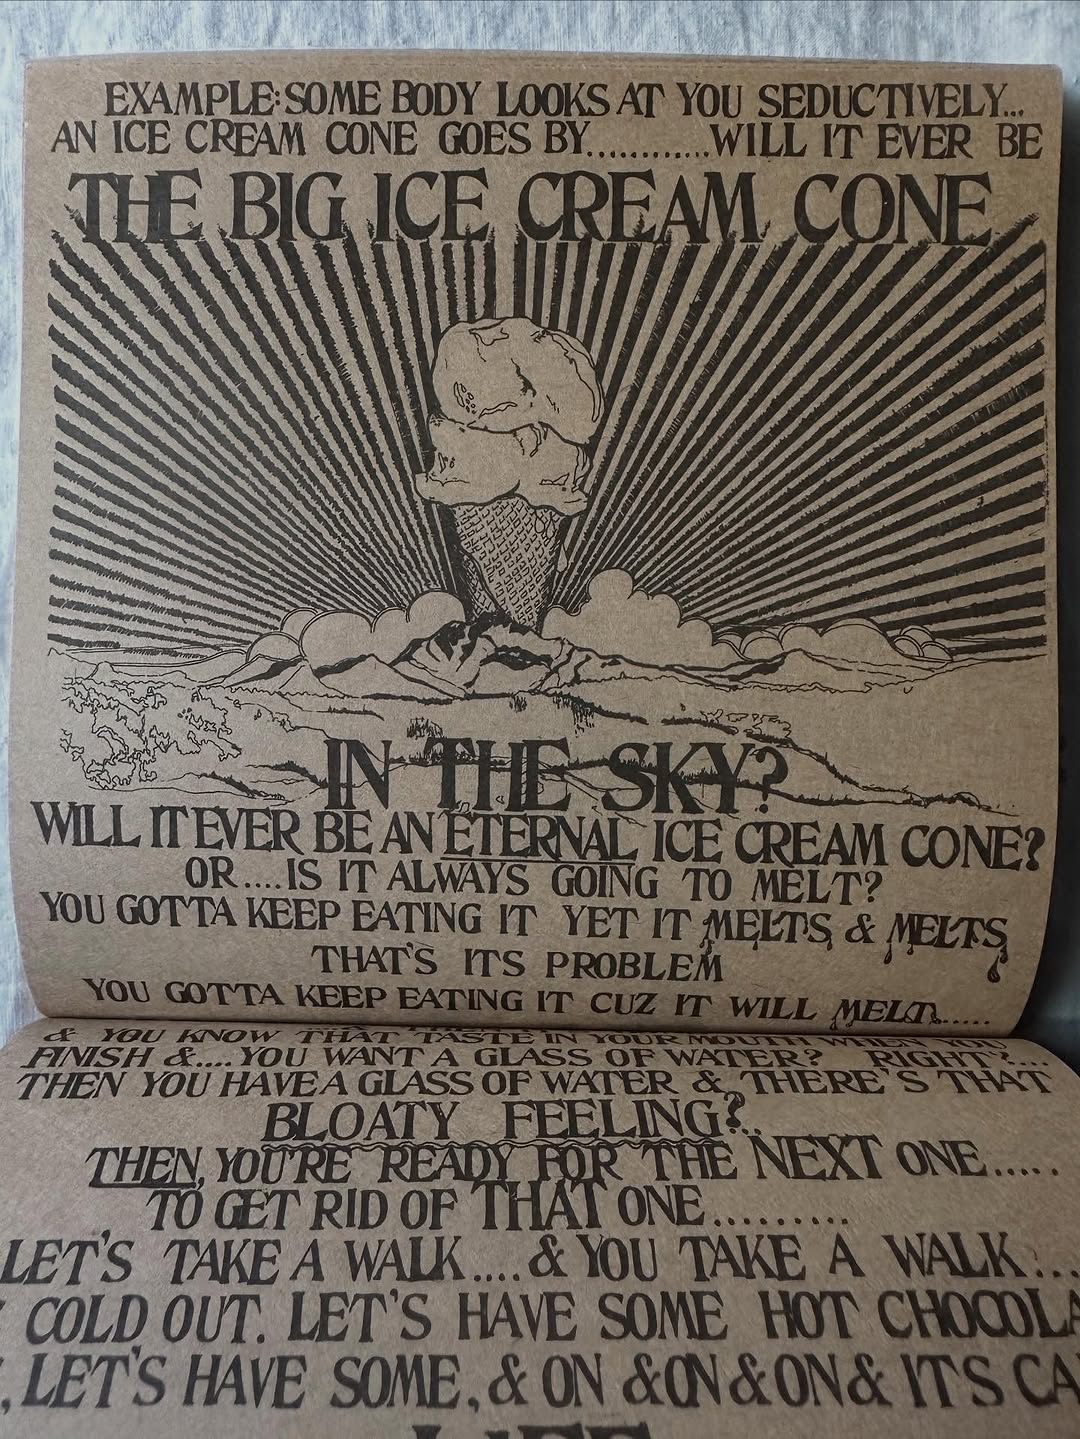 EXAMPLE: SOME BODY LOOKS AT YOU SEDUCTIVELY...
AN ICE CREAM CONE GOES BY............WILL IT EVER BE
THE BIG ICE CREAM CONE
IN THE SKY?
WILL IT EVER BE AN ETERNAL ICE CREAM CONE?
OR....IS IT ALWAYS GOING TO MELT?
YOU GOTTA KEEP EATING IT YET IT MELTS & MELTS
THAT'S ITS PROBLEM
YOU GOTTA KEEP EATING IT CUZ IT WILL MELT.....
& YOU KNOW THAT TASTE IN YOUR MOUTH WHEN YOU
FINISH &....YOU WANT A GLASS OF WATER? RIGHT?...
THEN YOU HAVE A GLASS OF WATER & THERE'S THAT
BLOATY FEELING?..
THEN, YOU'RE READY FOR THE NEXT ONE.....
TO GET RID OF THAT ONE.........
LET'S TAKE A WALK....& YOU TAKE A WALK...
COLD OUT. LET'S HAVE SOME HOT
, LET'S HAVE SOME, & ON & ON & ON & IT'S